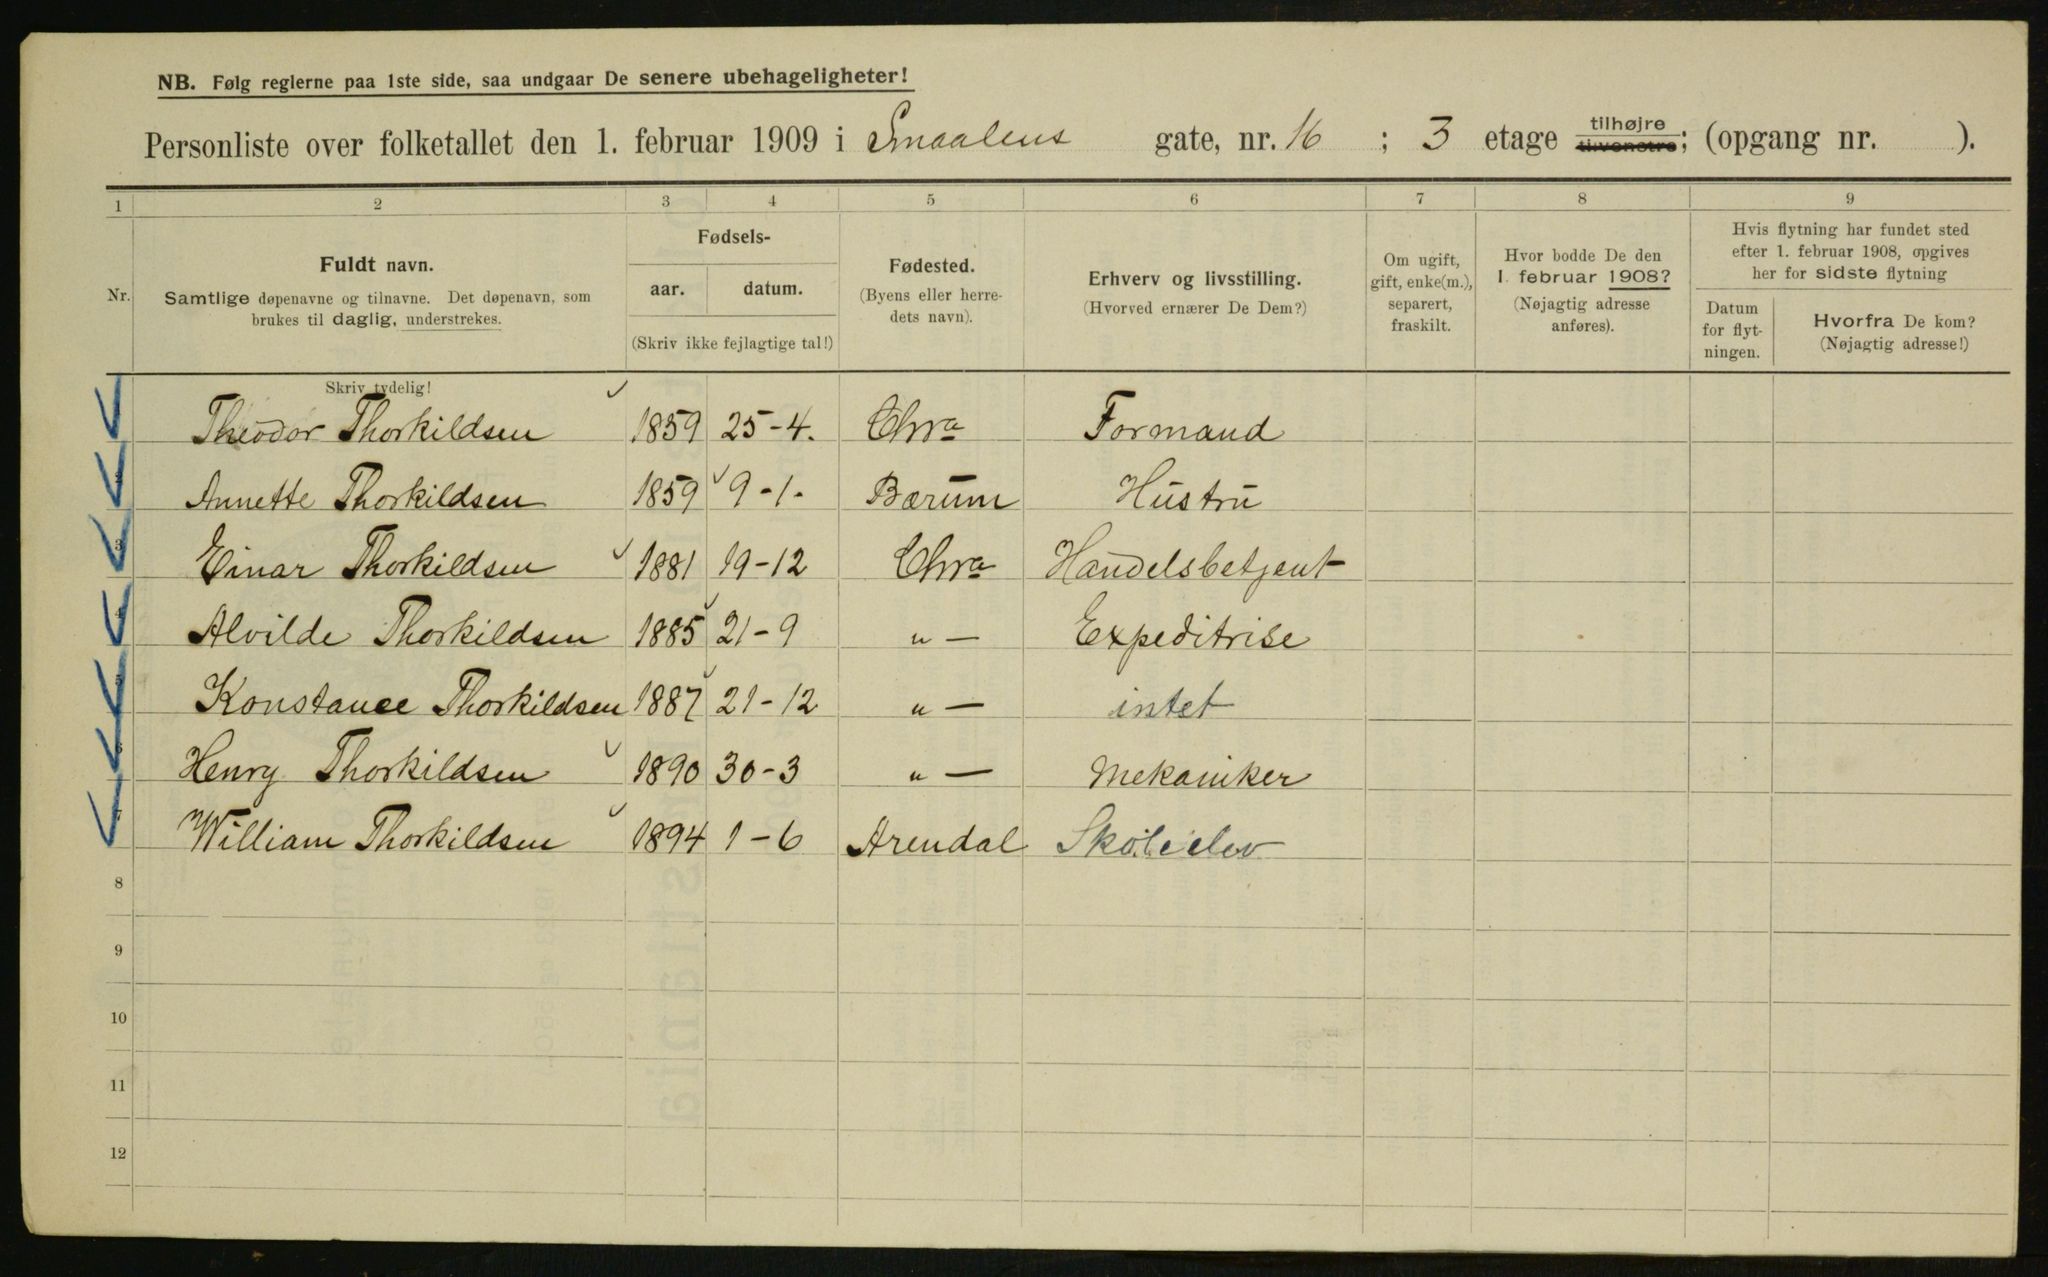 NB. Følg reglerne paa 1ste side, saa undgaar De senere ubehageligheter!
Personliste over folketallet den 1. februar 1909 i Smaalens gate, nr. 16 ; 3 etage tilhøjre tilvenstre; (opgang nr. ).
1 2 3 4 5 6 7 8 9
Nr.
Fuldt navn.
Samtlige døpenavne og tilnavne. Det døpenavn, som
brukes til daglig, understrekes.
Fødsels-
aar. datum.
(Skriv ikke fejlagtige tal!)
Fødested.
(Byens eller herre-
dets navn).
Erhverv og livsstilling.
(Hvorved ernærer De Dem?)
Om ugift,
gift, enke(m.),
separert,
fraskilt.
Hvor bodde De den
1. februar 1908?
(Nøjagtig adresse
anføres).
Hvis flytning har fundet sted
efter 1. februar 1908, opgives
her for sidste flytning
Datum
for flyt-
ningen.
Hvorfra De kom?
(Nøjagtig adresse!)
Skriv tydelig!
Theodor Thorkildsen 1859 25-4. Chra Formand
2 Annette Thorkildsen 1859 9-1. Bærum Hustru
3 Einar Thorkildsen 1881 19-12 Chra Handelsbetjent
4 Alvilde Thorkildsen 1885 21-9 „ — Expeditrise
5 Konstance Thorkildsen 1887 21-12 „ — intet
6 Henry Thorkildsen 1890 30-3 „ — Mekaniker
7 William Thorkildsen 1894 1-6 Arendal Skoleelev
8
9
10
11
12